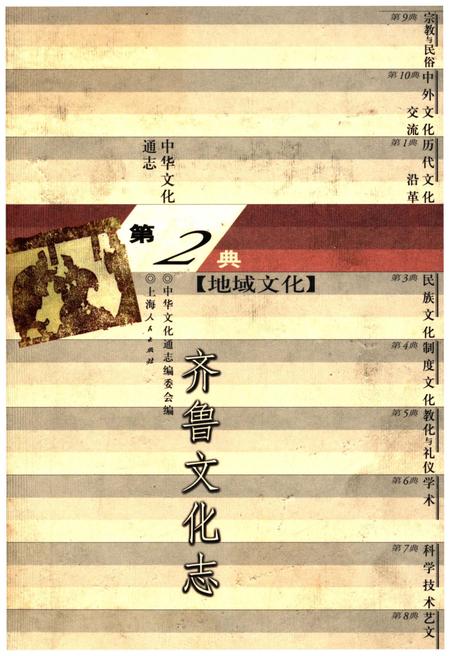 第9典
宗教与民俗
第10典
中外文化
交流
第1典
历代文化
沿革
中华文化
通志
第2典
【地域文化】
◎中华文化通志编委会编
◎上海人民出版社
齐鲁文化志
第3典
民族文化
第4典
制度文化
第5典
教化与礼仪
第6典
学术
第7典
科学技术
第8典
艺文